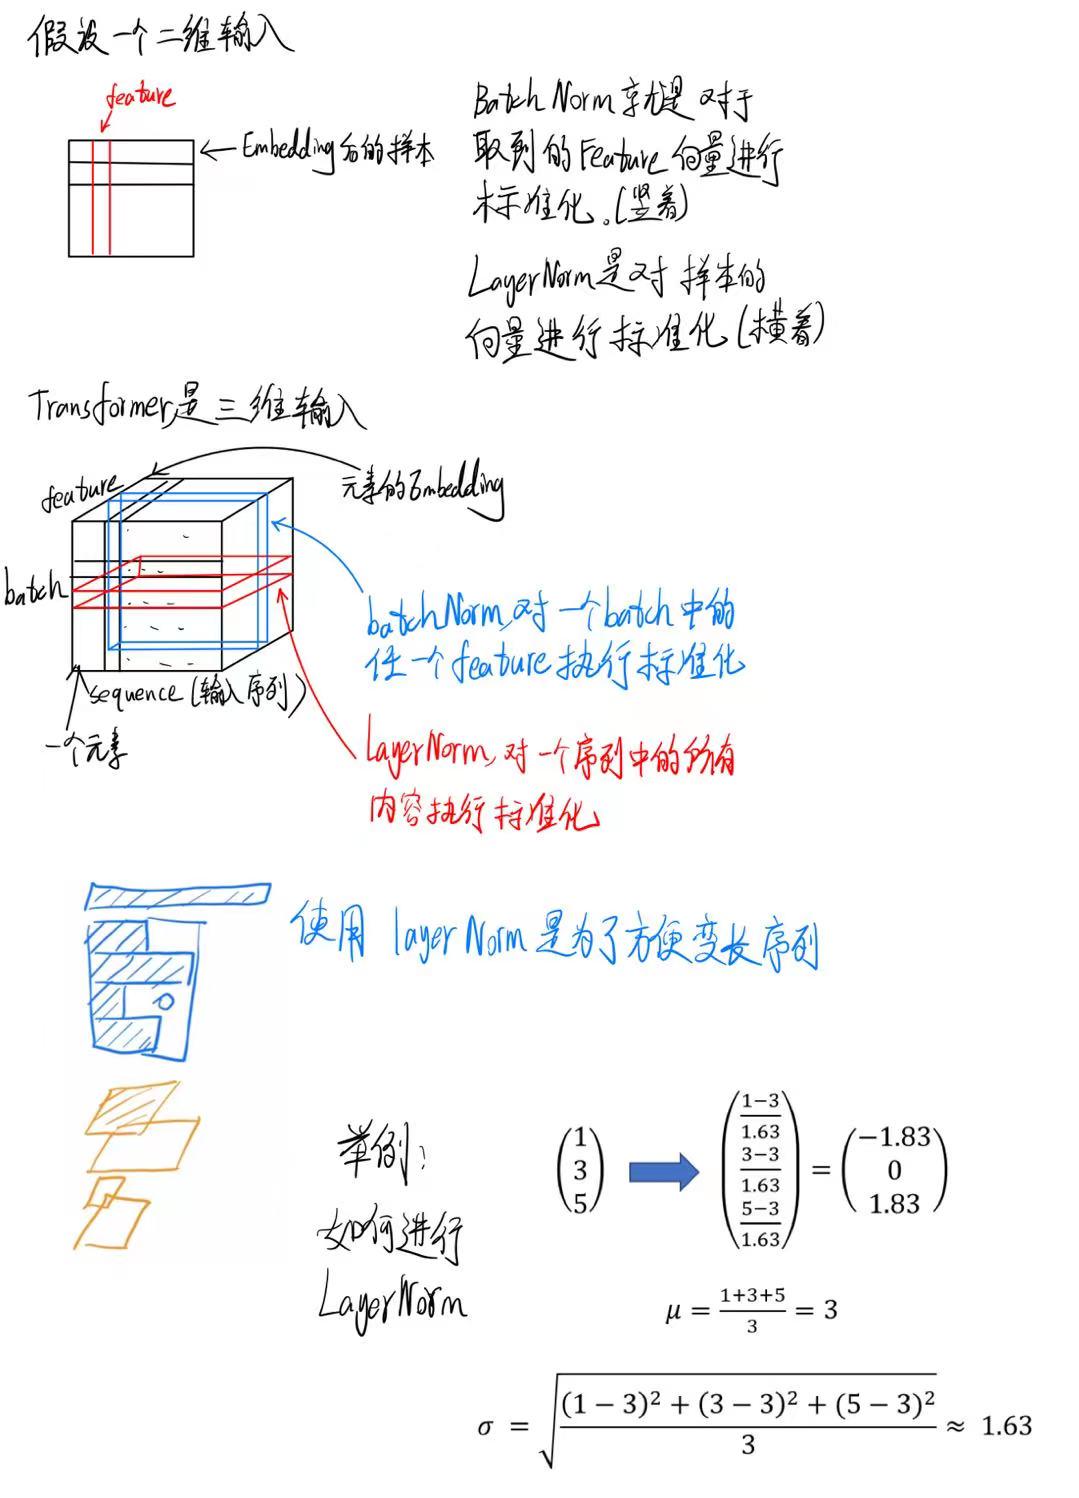 假设一个二维输入
feature
Embedding后的样本
Batch Norm就是对于
取到的Feature向量进行
标准化。(竖着)
LayerNorm是对样本的
向量进行标准化(横着)
Transformer是三维输入
feature
元素的Embedding
batch
batchNorm,对一个batch中的
任一个feature执行标准化
sequence(输入序列)
一个元素
LayerNorm,对一个序列中的所有
内容执行标准化
使用 layerNorm是为了方便变长序列
0
举例:
如何进行
LayerNorm
(1 3 5) → ((1−3)/1.63 (3−3)/1.63 (5−3)/1.63) = (−1.83 0 1.83)
μ = (1+3+5)/3 = 3
σ = √(((1 − 3)² + (3 − 3)² + (5 − 3)²)/3) ≈ 1.63